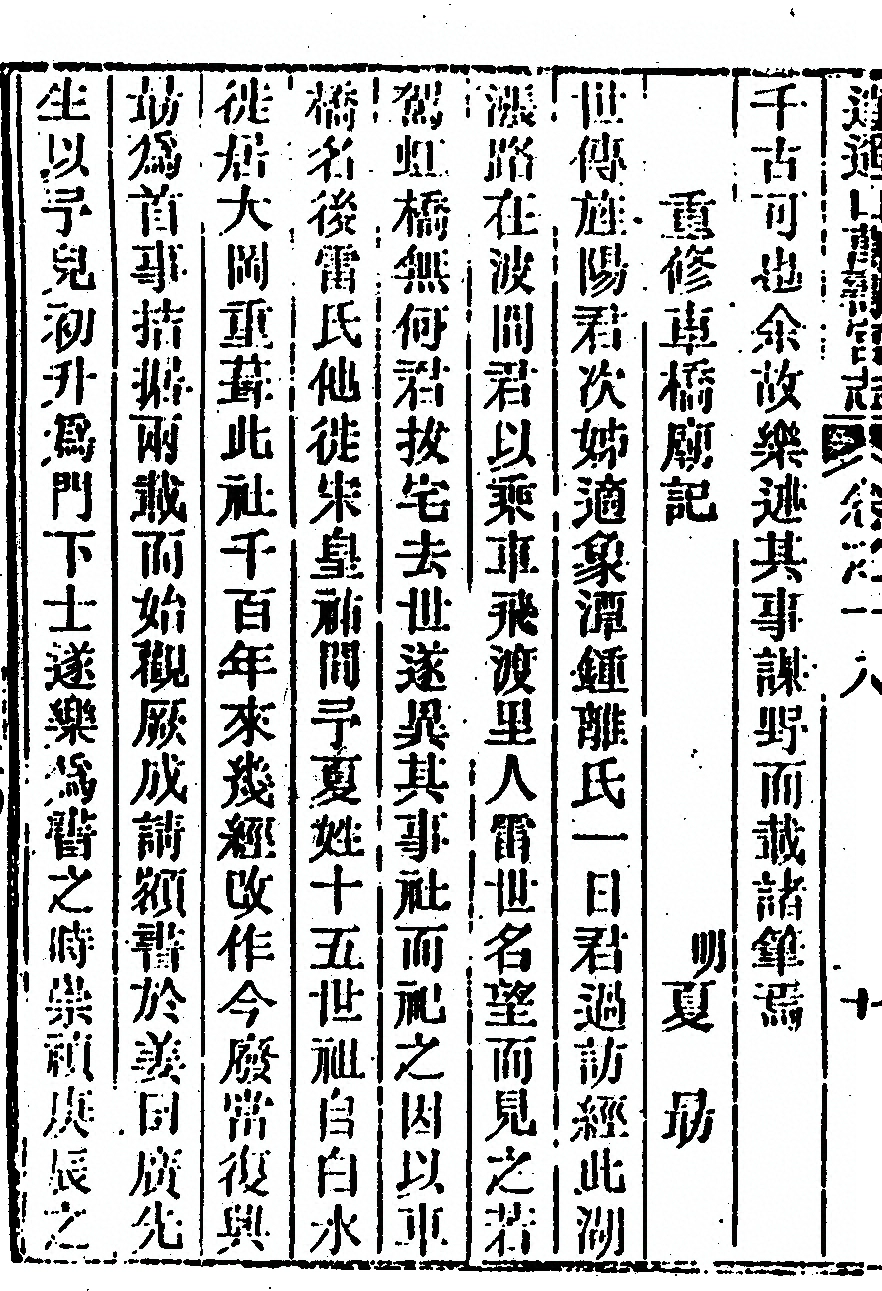 逍遙山萬壽宮志 卷之十八 十
千古可也余故樂述其事謀野而載諸筆焉
重修車橋廟記
明夏勗
世傳旌陽君次姊適象潭鍾離氏一日君過訪經此湖
漲路在波間君以乘車飛渡里人雷世名望而見之若
駕虹橋無何君拔宅去世遂異其事社而祀之因以車
橋名後雷氏他徙宋皇祐間予夏姓十五世祖自白水
徙居大岡重葺此社千百年來幾經改作今廢當復興
勗為首事拮据兩載而始觀厥成請額書於姜曰廣先
生以予兒初升為門下士遂樂為書之時崇禎庚辰之